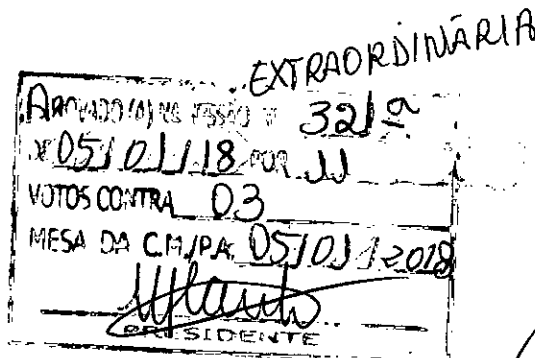 EXTRAORDINÁRIA
APROVADO (A) NA SESSÃO 32ª
05/01/18 POR 11
VOTOS CONTRA 03
MESA DA C.M./P.A. 05/01/2018
PRESIDENTE